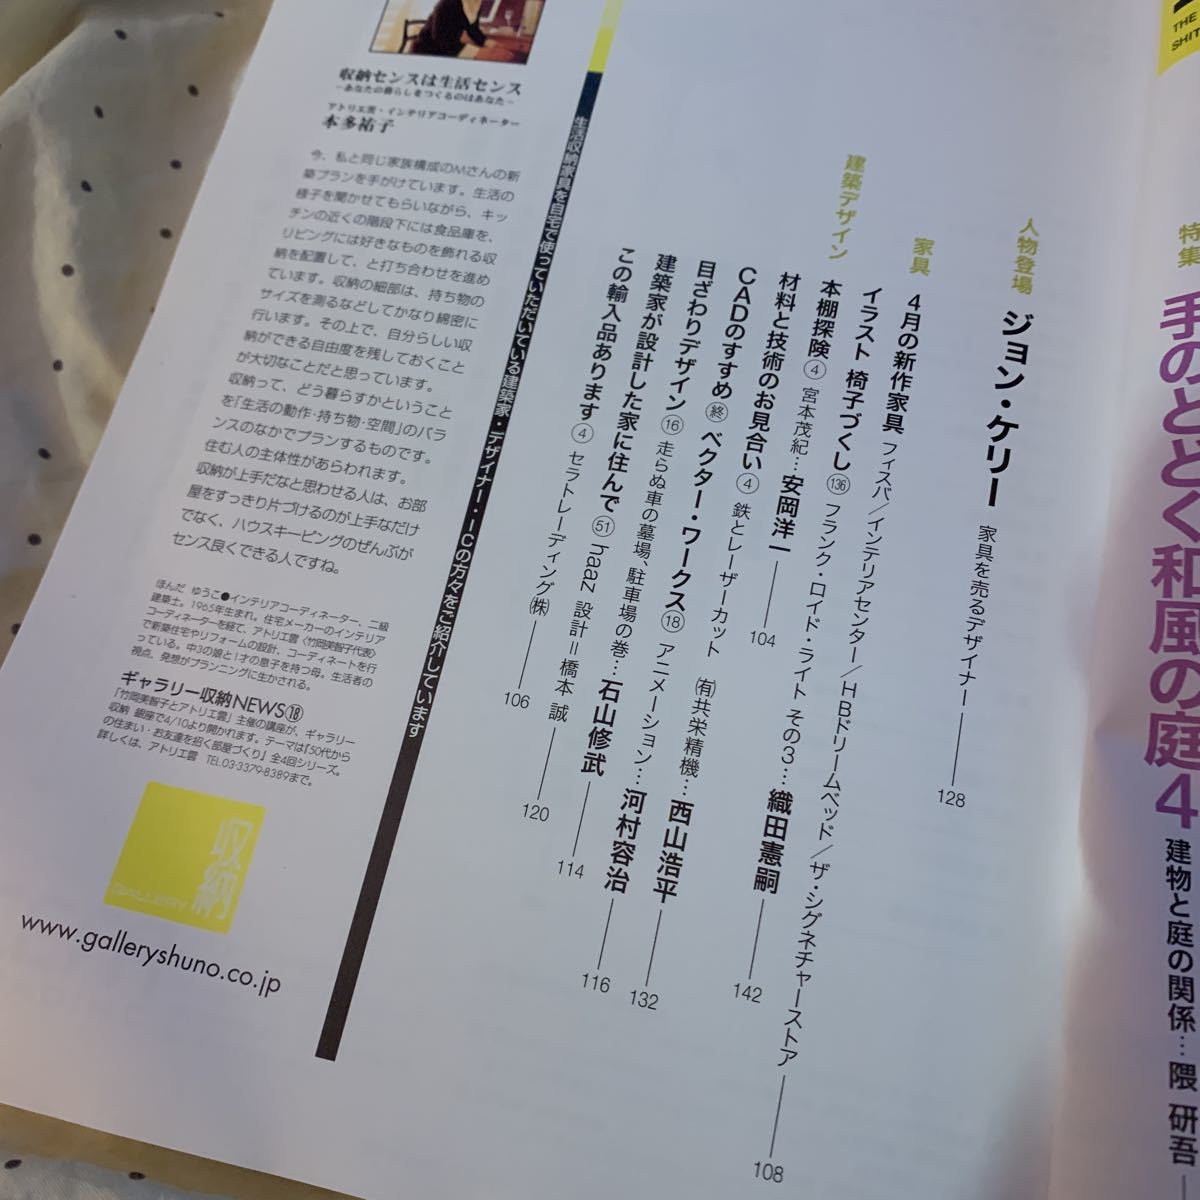 THE
SHIT
特集
手のとどく和風の庭4
建物と庭の関係…隈 研吾
人物登場
ジョン・ケリー 家具を売るデザイナー 128
家具
4月の新作家具 フィスバ／インテリアセンター／HBドリームベッド／ザ・シグネチャーストア 108
イラスト 椅子づくし 136 フランク・ロイド・ライト その3…織田憲嗣 142
建築デザイン
本棚探険④ 宮本茂紀…安岡洋一 104
材料と技術のお見合い④ 鉄とレーザーカット ㈲共栄精機…西山浩平 132
CADのすすめ㊡ ベクター・ワークス⑱ アニメーション…河村容治 116
目ざわりデザイン⑯ 走らぬ車の墓場、駐車場の巻…石山修武 114
建築家が設計した家に住んで 51 haaz 設計＝橋本 誠 120
この輸入品あります④ セラトレーディング㈱ 106
生活収納家具を自宅で使っていただいている建築家・デザイナー・ICの方々をご紹介しています
収納センスは生活センス
－あなたの暮らしをつくるのはあなた－
アトリエ雲・インテリアコーディネーター
本多祐子
今、私と同じ家族構成のMさんの新
築プランを手がけています。生活の
様子を聞かせてもらいながら、キッ
チンの近くの階段下には食品庫を、
リビングには好きなものを飾れる収
納を配置して、と打ち合わせを進め
ています。収納の細部は、持ち物の
サイズを測るなどしてかなり綿密に
行います。その上で、自分らしい収
納ができる自由度を残しておくこと
が大切なことだと思っています。
収納って、どう暮らすかということ
を「生活の動作・持ち物・空間」のバラ
ンスのなかでプランするものです。
住む人の主体性があらわれます。
収納が上手だなと思わせる人は、お部
屋をすっきり片づけるのが上手なだけ
でなく、ハウスキーピングのぜんぶが
センス良くできる人ですね。
ほんだ ゆうこ●インテリアコーディネーター、二級
建築士。1965年生まれ。住宅メーカーのインテリア
コーディネーターを経て、アトリエ雲〈竹岡美智子代表〉
で新築住宅やリフォームの設計、コーディネートを行
っている。中3の娘と1才の息子を持つ母。生活者の
視点、発想がプランニングに生かされる。
ギャラリー収納NEWS⑱
「竹岡美智子とアトリエ雲」主催の講座が、ギャラリー
収納 銀座で4/10より開かれます。テーマは「50代から
の住まい・お友達を招く部屋づくり」全4回シリーズ。
詳しくは、アトリエ雲 TEL.03-3379-8389まで。
収納
GALLERY
www.galleryshuno.co.jp